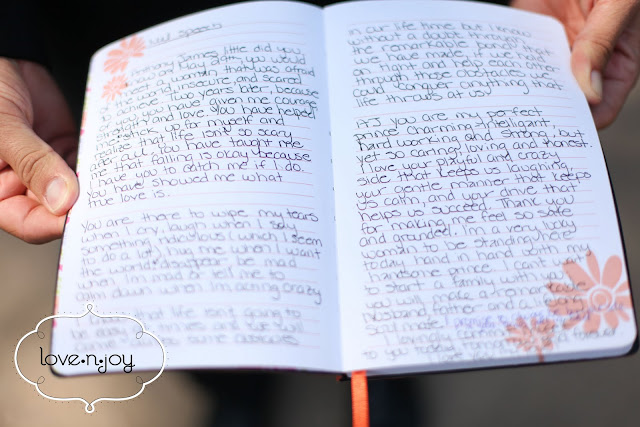 Speech
James, little did you
know on May 29th, you would
meet a woman that was afraid
of the world, insecure and scared
to achieve. Two years later, because
of you, you have given me courage
and love. You have helped
me stick up for myself and
realize that life isn't so scary
after all. You have taught me
that falling is okay because
I have you to catch me if I do.
You have showed me what
true love is.
You are there to wipe my tears
when I cry, laugh when I say
something ridiculous (which I seem
to do a lot), hug me when I want
the world to disappear, be mad
when I'm mad or tell me to
calm down when I'm acting crazy
I know that life isn't going to
be and we will
some obstacles
in our life time, but I know
without a doubt through
the remarkable bond that
we have made if we hold
on tight and help each other
through those obstacles we
could conquer anything that
life throws at us.
you are my perfect
prince charming, resiliant,
hard working and strong, but
yet so caring, loving and honest.
I love your playful and crazy
side that keeps us laughing,
your gentle manner that keeps
us calm, and your drive that
helps us succeed. Thank you
for making me feel so safe
and grounded. I'm a very lucky
woman to be standing here
today hand in hand with my
handsome prince. I can't wait
to start a family with you,
you will make a remarkable
husband, father and a loving
soul mate.
I
to you today, and forever
love•n•joy